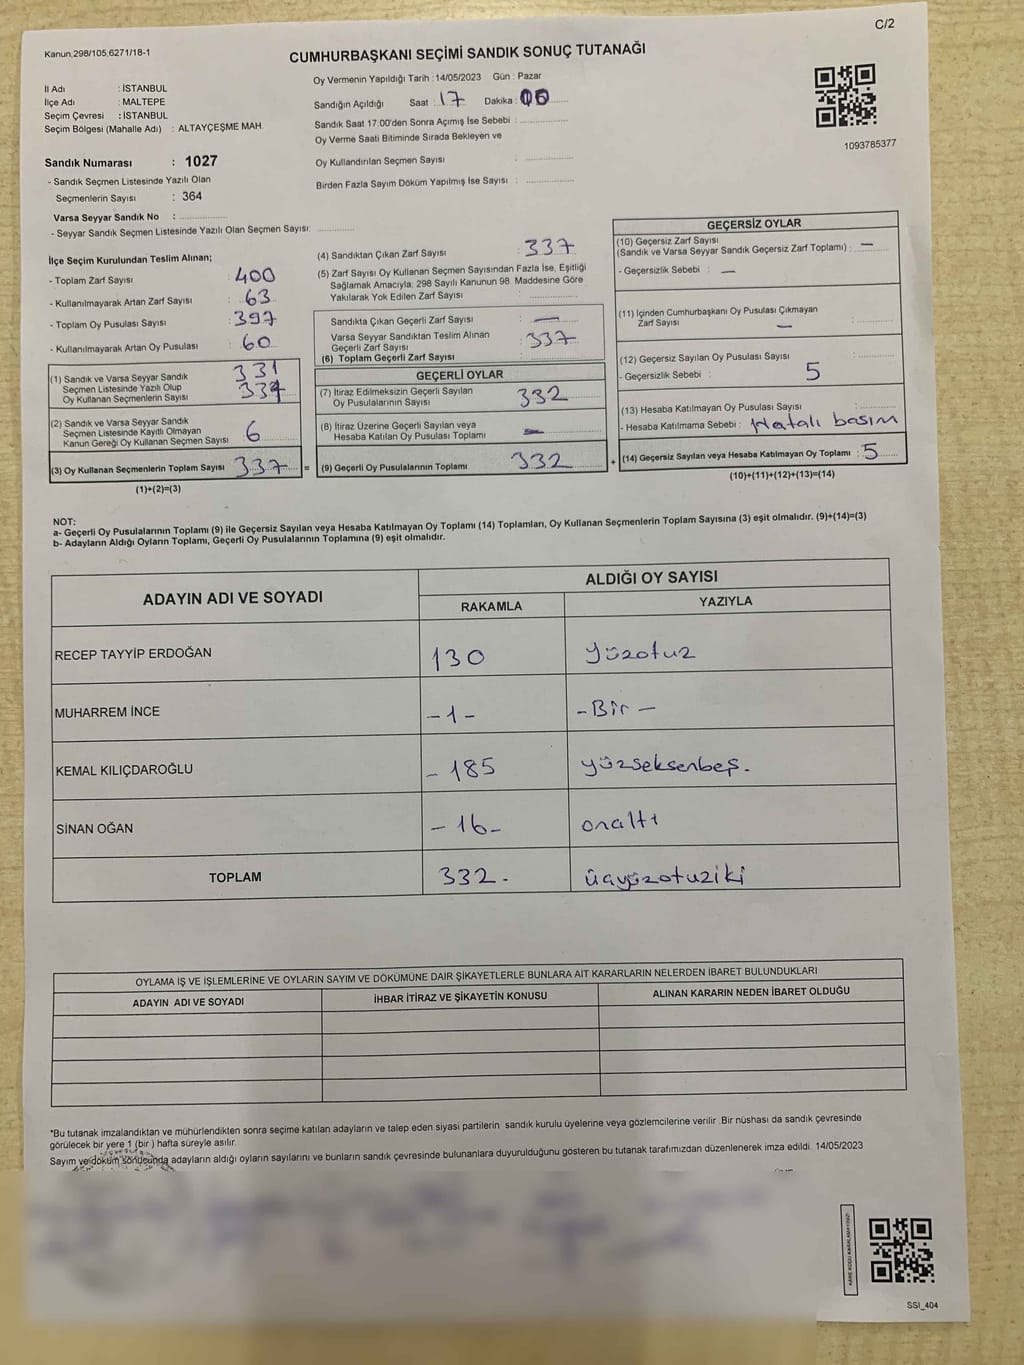 C/2
Kanun,298/105,6271/18-1
CUMHURBAŞKANI SEÇİMİ SANDIK SONUÇ TUTANAĞI
İl Adı : İSTANBUL
İlçe Adı : MALTEPE
Seçim Çevresi : İSTANBUL
Seçim Bölgesi (Mahalle Adı) : ALTAYÇEŞME MAH.
Oy Vermenin Yapıldığı Tarih : 14/05/2023 Gün : Pazar
Sandığın Açıldığı Saat : 17 Dakika :
Sandık Saat 17:00'den Sonra Açımış İse Sebebi :
Oy Verme Saati Bitiminde Sırada Bekleyen ve
Oy Kullandırılan Seçmen Sayısı :
Birden Fazla Sayım Döküm Yapılmış İse Sayısı :
1093785377
Sandık Numarası : 1027
- Sandık Seçmen Listesinde Yazılı Olan
Seçmenlerin Sayısı : 364
Varsa Seyyar Sandık No :
- Seyyar Sandık Seçmen Listesinde Yazılı Olan Seçmen Sayısı:
İlçe Seçim Kurulundan Teslim Alınan;
- Toplam Zarf Sayısı : 400
- Kullanılmayarak Artan Zarf Sayısı : 63
- Toplam Oy Pusulası Sayısı : 397
- Kullanılmayarak Artan Oy Pusulası : 60
331
(1) Sandık ve Varsa Seyyar Sandık
Seçmen Listesinde Yazılı Olup
Oy Kullanan Seçmenlerin Sayısı
(2) Sandık ve Varsa Seyyar Sandık
Seçmen Listesinde Kayıtlı Olmayan
Kanun Gereği Oy Kullanan Seçmen Sayısı 6
(3) Oy Kullanan Seçmenlerin Toplam Sayısı 337 =
(1)+(2)=(3)
(4) Sandıktan Çıkan Zarf Sayısı : 337
(5) Zarf Sayısı Oy Kullanan Seçmen Sayısından Fazla İse, Eşitliği
Sağlamak Amacıyla; 298 Sayılı Kanunun 98. Maddesine Göre
Yakılarak Yok Edilen Zarf Sayısı :
Sandıkta Çıkan Geçerli Zarf Sayısı : —
Varsa Seyyar Sandıktan Teslim Alınan
Geçerli Zarf Sayısı : 337
(6) Toplam Geçerli Zarf Sayısı :
GEÇERLİ OYLAR
(7) İtiraz Edilmeksizin Geçerli Sayılan
Oy Pusulalarının Sayısı 332
(8) İtiraz Üzerine Geçerli Sayılan veya
Hesaba Katılan Oy Pusulası Toplamı —
(9) Geçerli Oy Pusulalarının Toplamı 332 +
GEÇERSİZ OYLAR
(10) Geçersiz Zarf Sayısı
(Sandık ve Varsa Seyyar Sandık Geçersiz Zarf Toplamı) : —
- Geçersizlik Sebebi : —
(11) İçinden Cumhurbaşkanı Oy Pusulası Çıkmayan
Zarf Sayısı — :
(12) Geçersiz Sayılan Oy Pusulası Sayısı :
- Geçersizlik Sebebi : 5
(13) Hesaba Katılmayan Oy Pusulası Sayısı :
- Hesaba Katılmama Sebebi : Hatalı basım
(14) Geçersiz Sayılan veya Hesaba Katılmayan Oy Toplamı : 5
(10)+(11)+(12)+(13)=(14)
NOT:
a- Geçerli Oy Pusulalarının Toplamı (9) ile Geçersiz Sayılan veya Hesaba Katılmayan Oy Toplamı (14) Toplamları, Oy Kullanan Seçmenlerin Toplam Sayısına (3) eşit olmalıdır. (9)+(14)=(3)
b- Adayların Aldığı Oyların Toplamı, Geçerli Oy Pusulalarının Toplamına (9) eşit olmalıdır.
ADAYIN ADI VE SOYADI ALDIĞI OY SAYISI
RAKAMLA YAZIYLA
RECEP TAYYİP ERDOĞAN 130 yüzotuz
MUHARREM İNCE -1- -Bir-
KEMAL KILIÇDAROĞLU - 185 yüzseksenbeş.
SİNAN OĞAN -16- onaltı
TOPLAM 332- üçyüzotuziki
OYLAMA İŞ VE İŞLEMLERİNE VE OYLARIN SAYIM VE DÖKÜMÜNE DAİR ŞİKAYETLERLE BUNLARA AİT KARARLARIN NELERDEN İBARET BULUNDUKLARI
ADAYIN ADI VE SOYADI İHBAR İTİRAZ VE ŞİKAYETİN KONUSU ALINAN KARARIN NEDEN İBARET OLDUĞU
*Bu tutanak imzalandıktan ve mühürlendikten sonra seçime katılan adayların ve talep eden siyasi partilerin sandık kurulu üyelerine veya gözlemcilerine verilir .Bir nüshası da sandık çevresinde
görülecek bir yere 1 (bir ) hafta süreyle asılır.
Sayım ve döküm sonucunda adayların aldığı oyların sayılarını ve bunların sandık çevresinde bulunanlara duyurulduğunu gösteren bu tutanak tarafımızdan düzenlenerek imza edildi. 14/05/2023
SSI_404